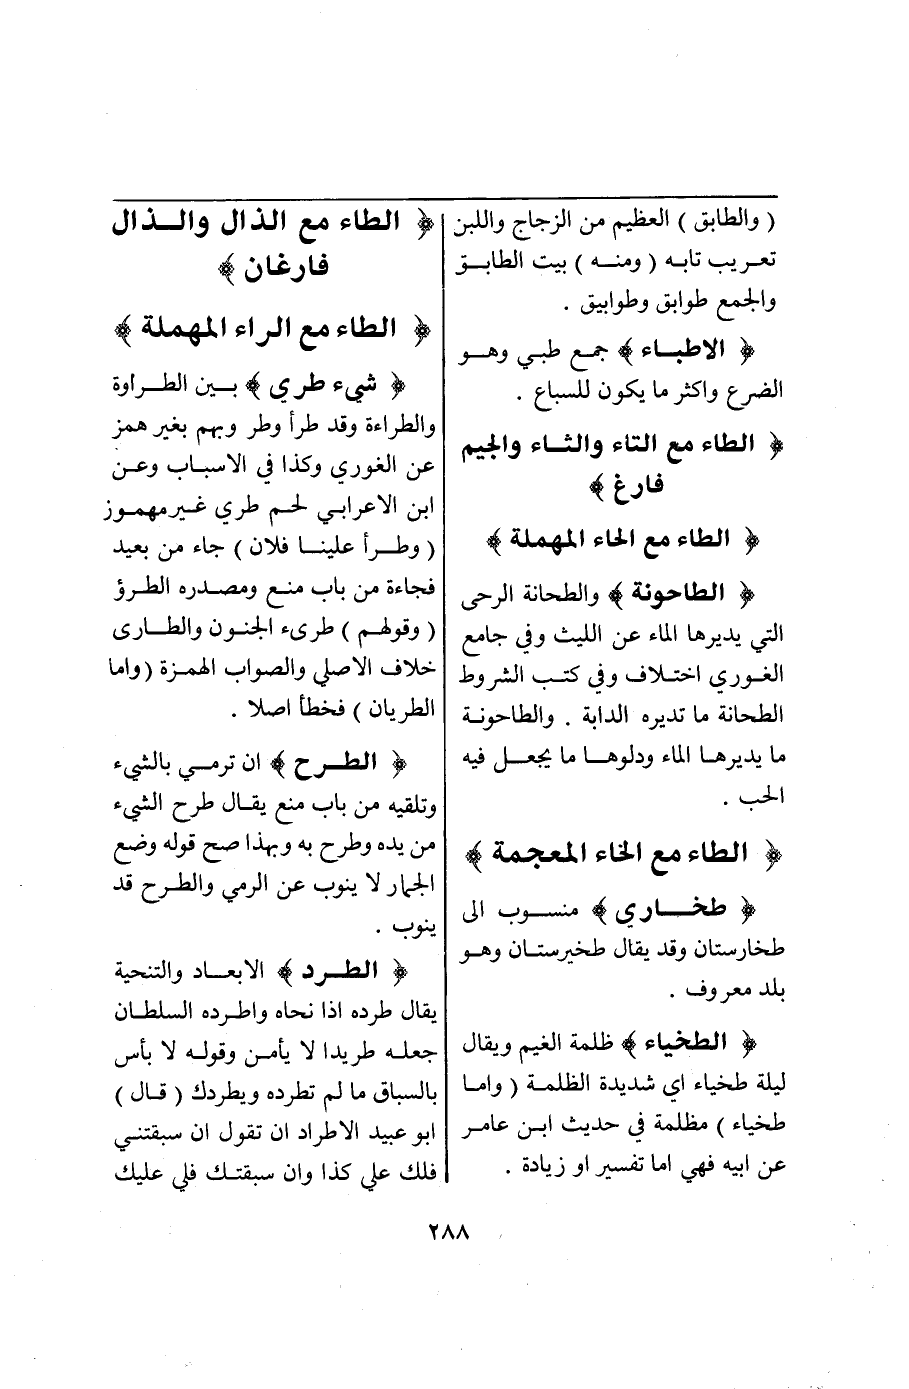 ( والطابق ) العظيم من الزجاج واللبن
تعريب تابه ( ومنه ) بيت الطابق
والجمع طوابق وطوابيق .
﴿ الاطباء ﴾ جمع طبي وهو
الضرع واكثر ما يكون للسباع .
﴿ الطاء مع التاء والثاء والجيم
فارغ ﴾
﴿ الطاء مع الحاء المهملة ﴾
﴿ الطاحونة ﴾ والطحانة الرحى
التي يديرها الماء عن الليث وفي جامع
الغوري اختلاف وفي كتب الشروط
الطحانة ما تديره الدابة . والطاحونة
ما يديرها الماء ودلوها ما يجعل فيه
الحب .
﴿ الطاء مع الخاء المعجمة ﴾
﴿ طخاري ﴾ منسوب الى
طخارستان وقد يقال طخيرستان وهو
بلد معروف .
﴿ الطخياء ﴾ ظلمة الغيم ويقال
ليلة طخياء اي شديدة الظلمة ( واما
طخياء ) مظلمة في حديث ابن عامر
عن ابيه فهي اما تفسير او زيادة .
﴿ الطاء مع الدال والذال
فارغان ﴾
﴿ الطاء مع الراء المهملة ﴾
﴿ شيء طري ﴾ بين الطراوة
والطراءة وقد طرأ وطر وبهم بغير همز
عن الغوري وكذا في الاسباب وعن
ابن الاعرابي لحم طري غير مهموز
( وطرأ علينا فلان ) جاء من بعيد
فجاءة من باب منع ومصدره الطرؤ
( وقولهم ) طرىء الجنون والطارى
خلاف الاصلي والصواب الهمزة ( واما
الطريان ) فخطأ اصلا .
﴿ الطرح ﴾ ان ترمي بالشيء
وتلقيه من باب منع يقال طرح الشيء
من يده وطرح به وبهذا صح قوله وضع
الجمار لا ينوب عن الرمي والطرح قد
ينوب .
﴿ الطرد ﴾ الابعاد والتنحية
يقال طرده اذا نحاه واطرده السلطان
جعله طريدا لا يأمن وقوله لا بأس
بالسباق ما لم تطرده ويطردك ( قال )
ابو عبيد الاطراد ان تقول ان سبقتني
فلك علي كذا وان سبقتك فلي عليك
٢٨٨